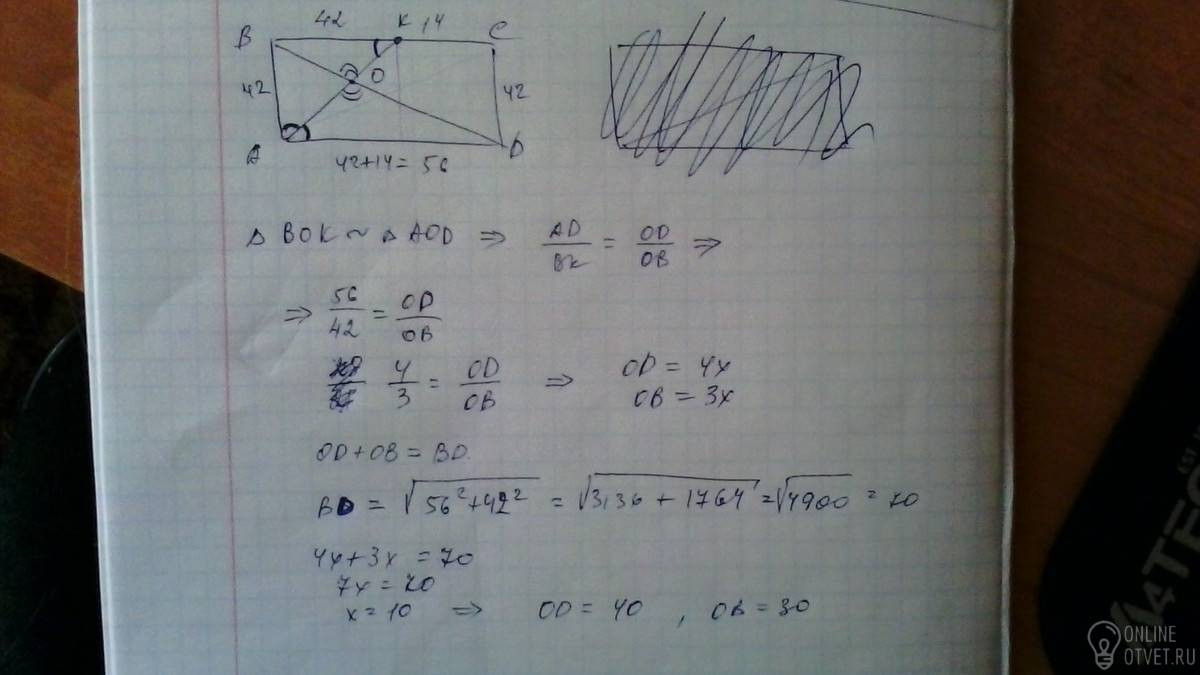 42 K 14
B C
O
42 42
A D
42+14= 56
Δ BOK ~ Δ AOD ⇒ AD/BK = OD/OB ⇒
⇒ 56/42 = OD/OB
4/3 = OD/OB ⇒ OD = 4x
OB = 3x
OD+OB = BD.
BD = √56²+42² = √3136 + 1764 = √4900 = 70
4x+3x = 70
7x = 70
x = 10 ⇒ OD = 40 , OB = 30
A4TECH
ONLINE
OTVET.RU